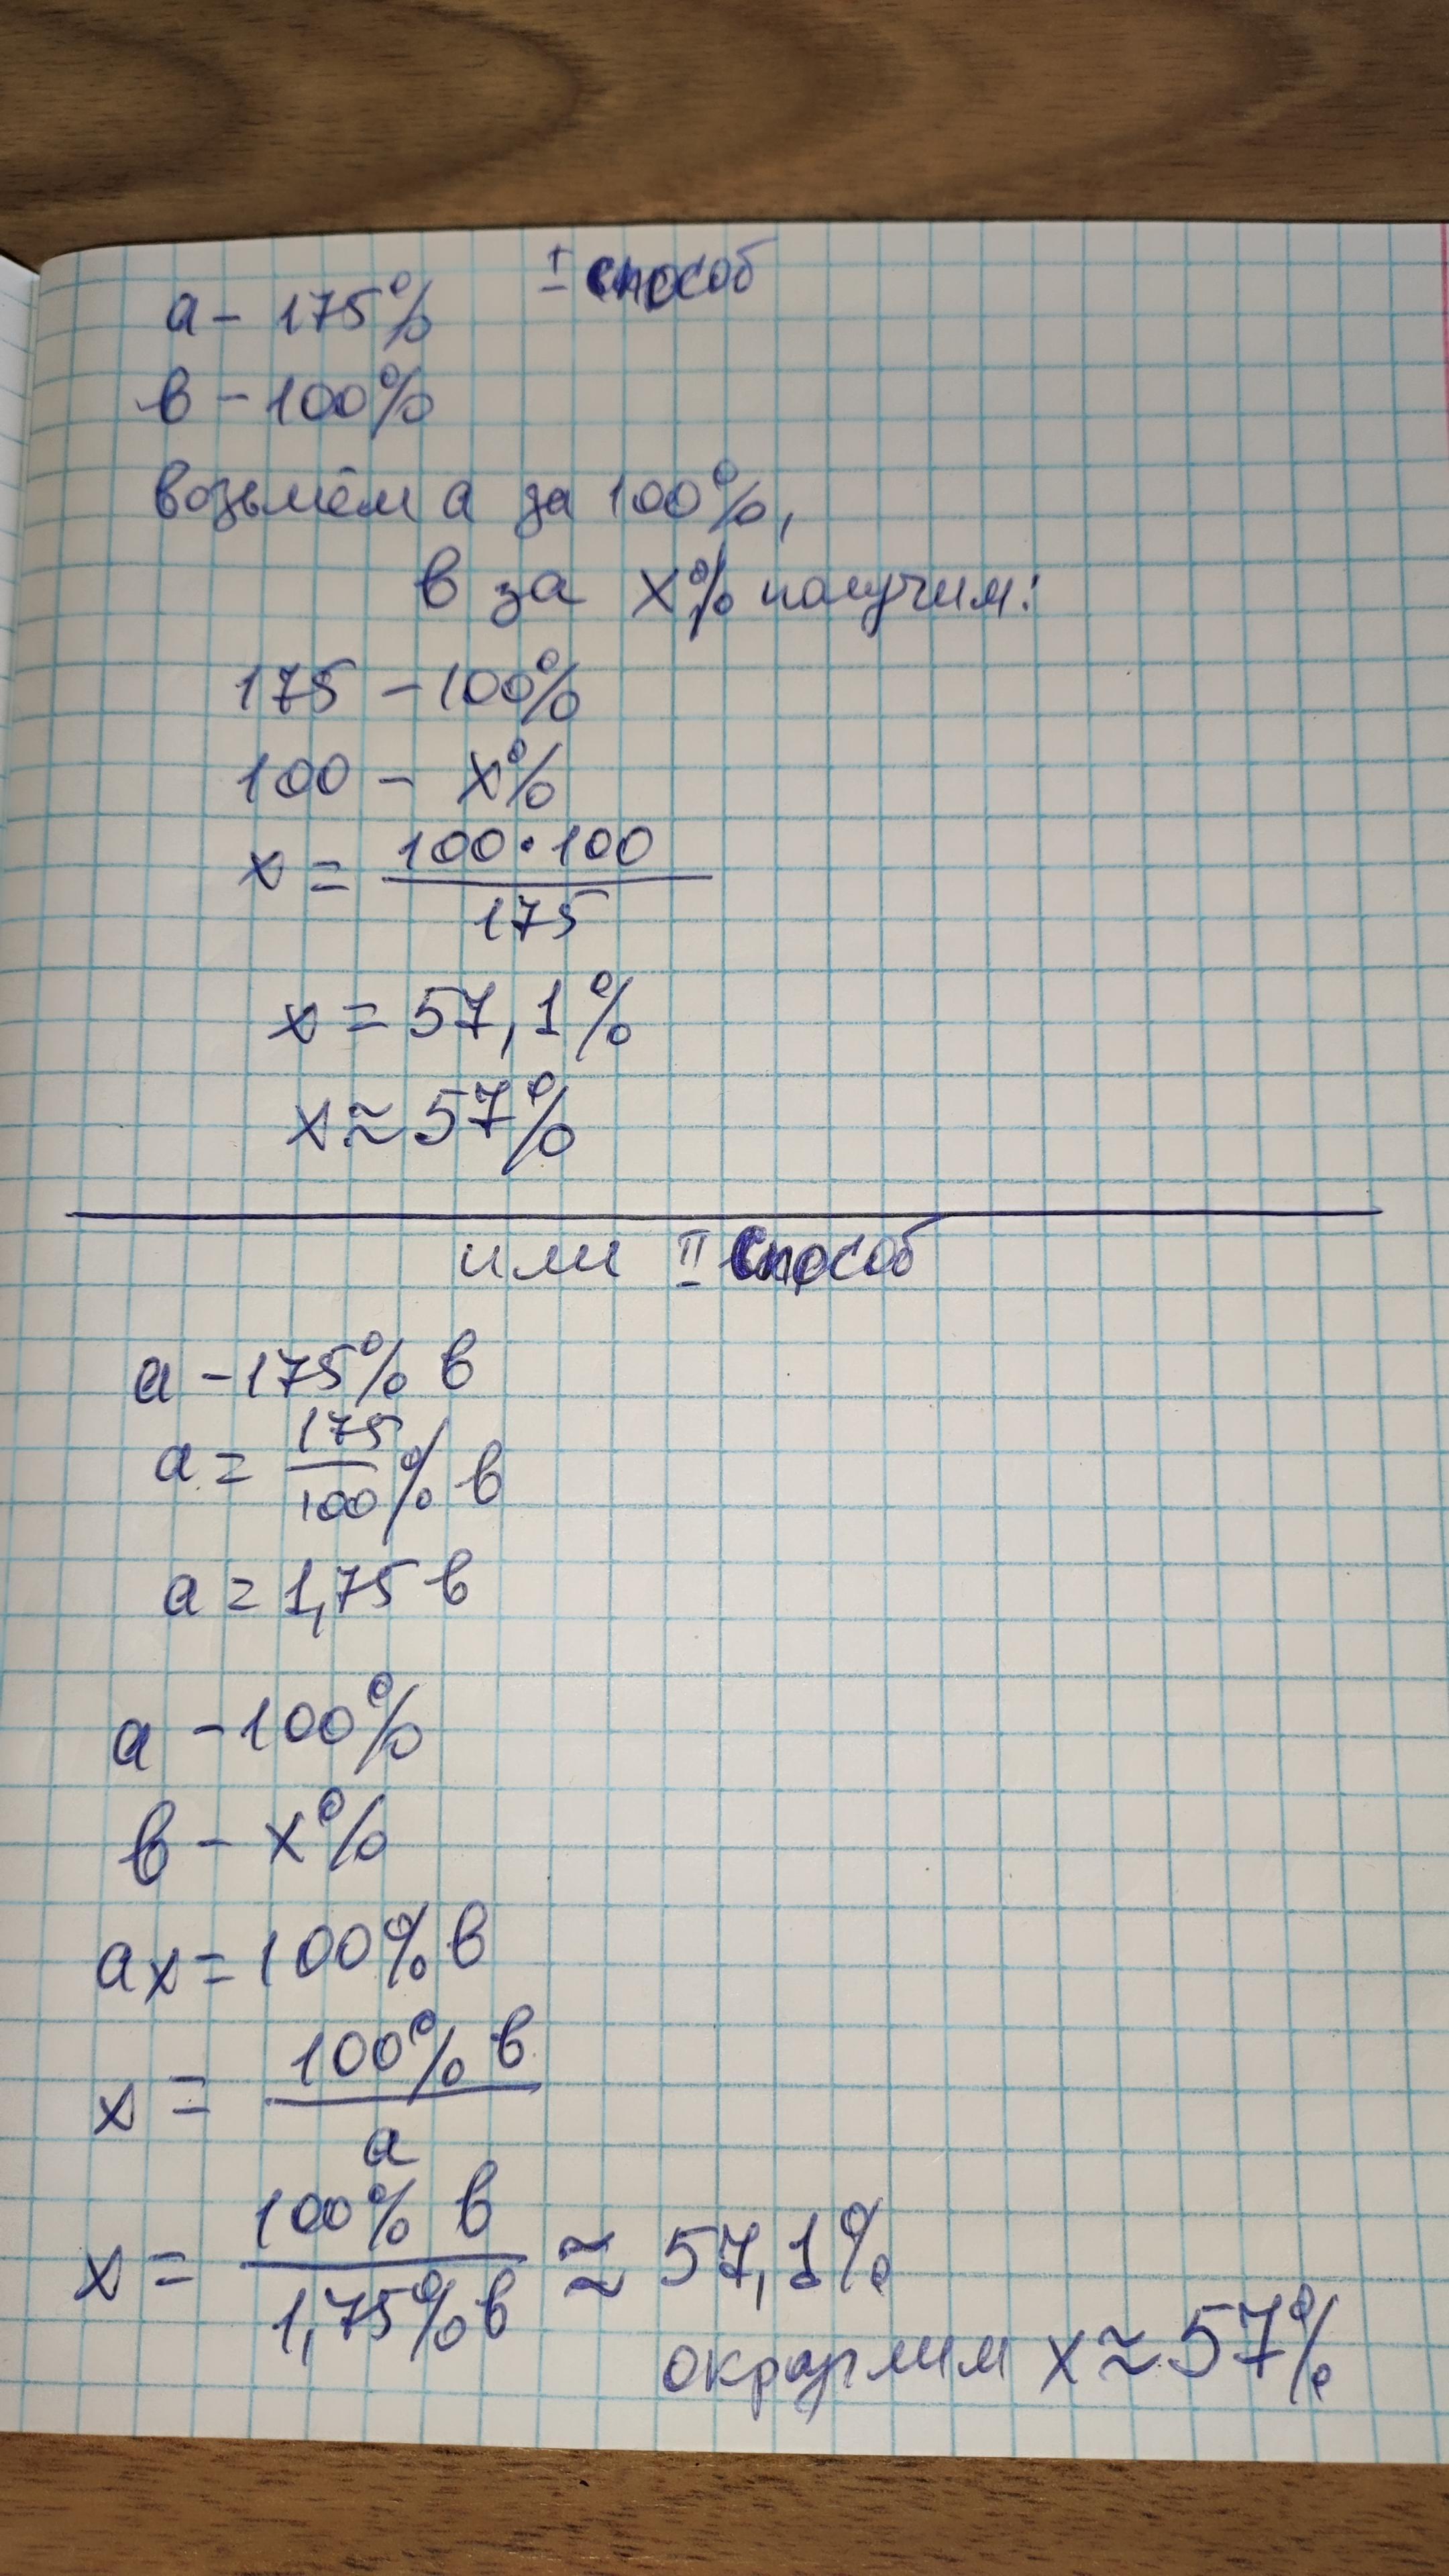 I способ
а - 175%
в - 100%
возьмём а за 100%,
в за х% получим:
175 - 100%
100 - х%
х = 100·100 / 175
х = 57,1%
х ≈ 57%
или II способ
а - 175% в
а = 175/100% в
а = 1,75 в
а - 100%
в - х%
ах = 100% в
х = 100% в / а
х = 100% в / 1,75% в ≈ 57,1%
округлим х ≈ 57%